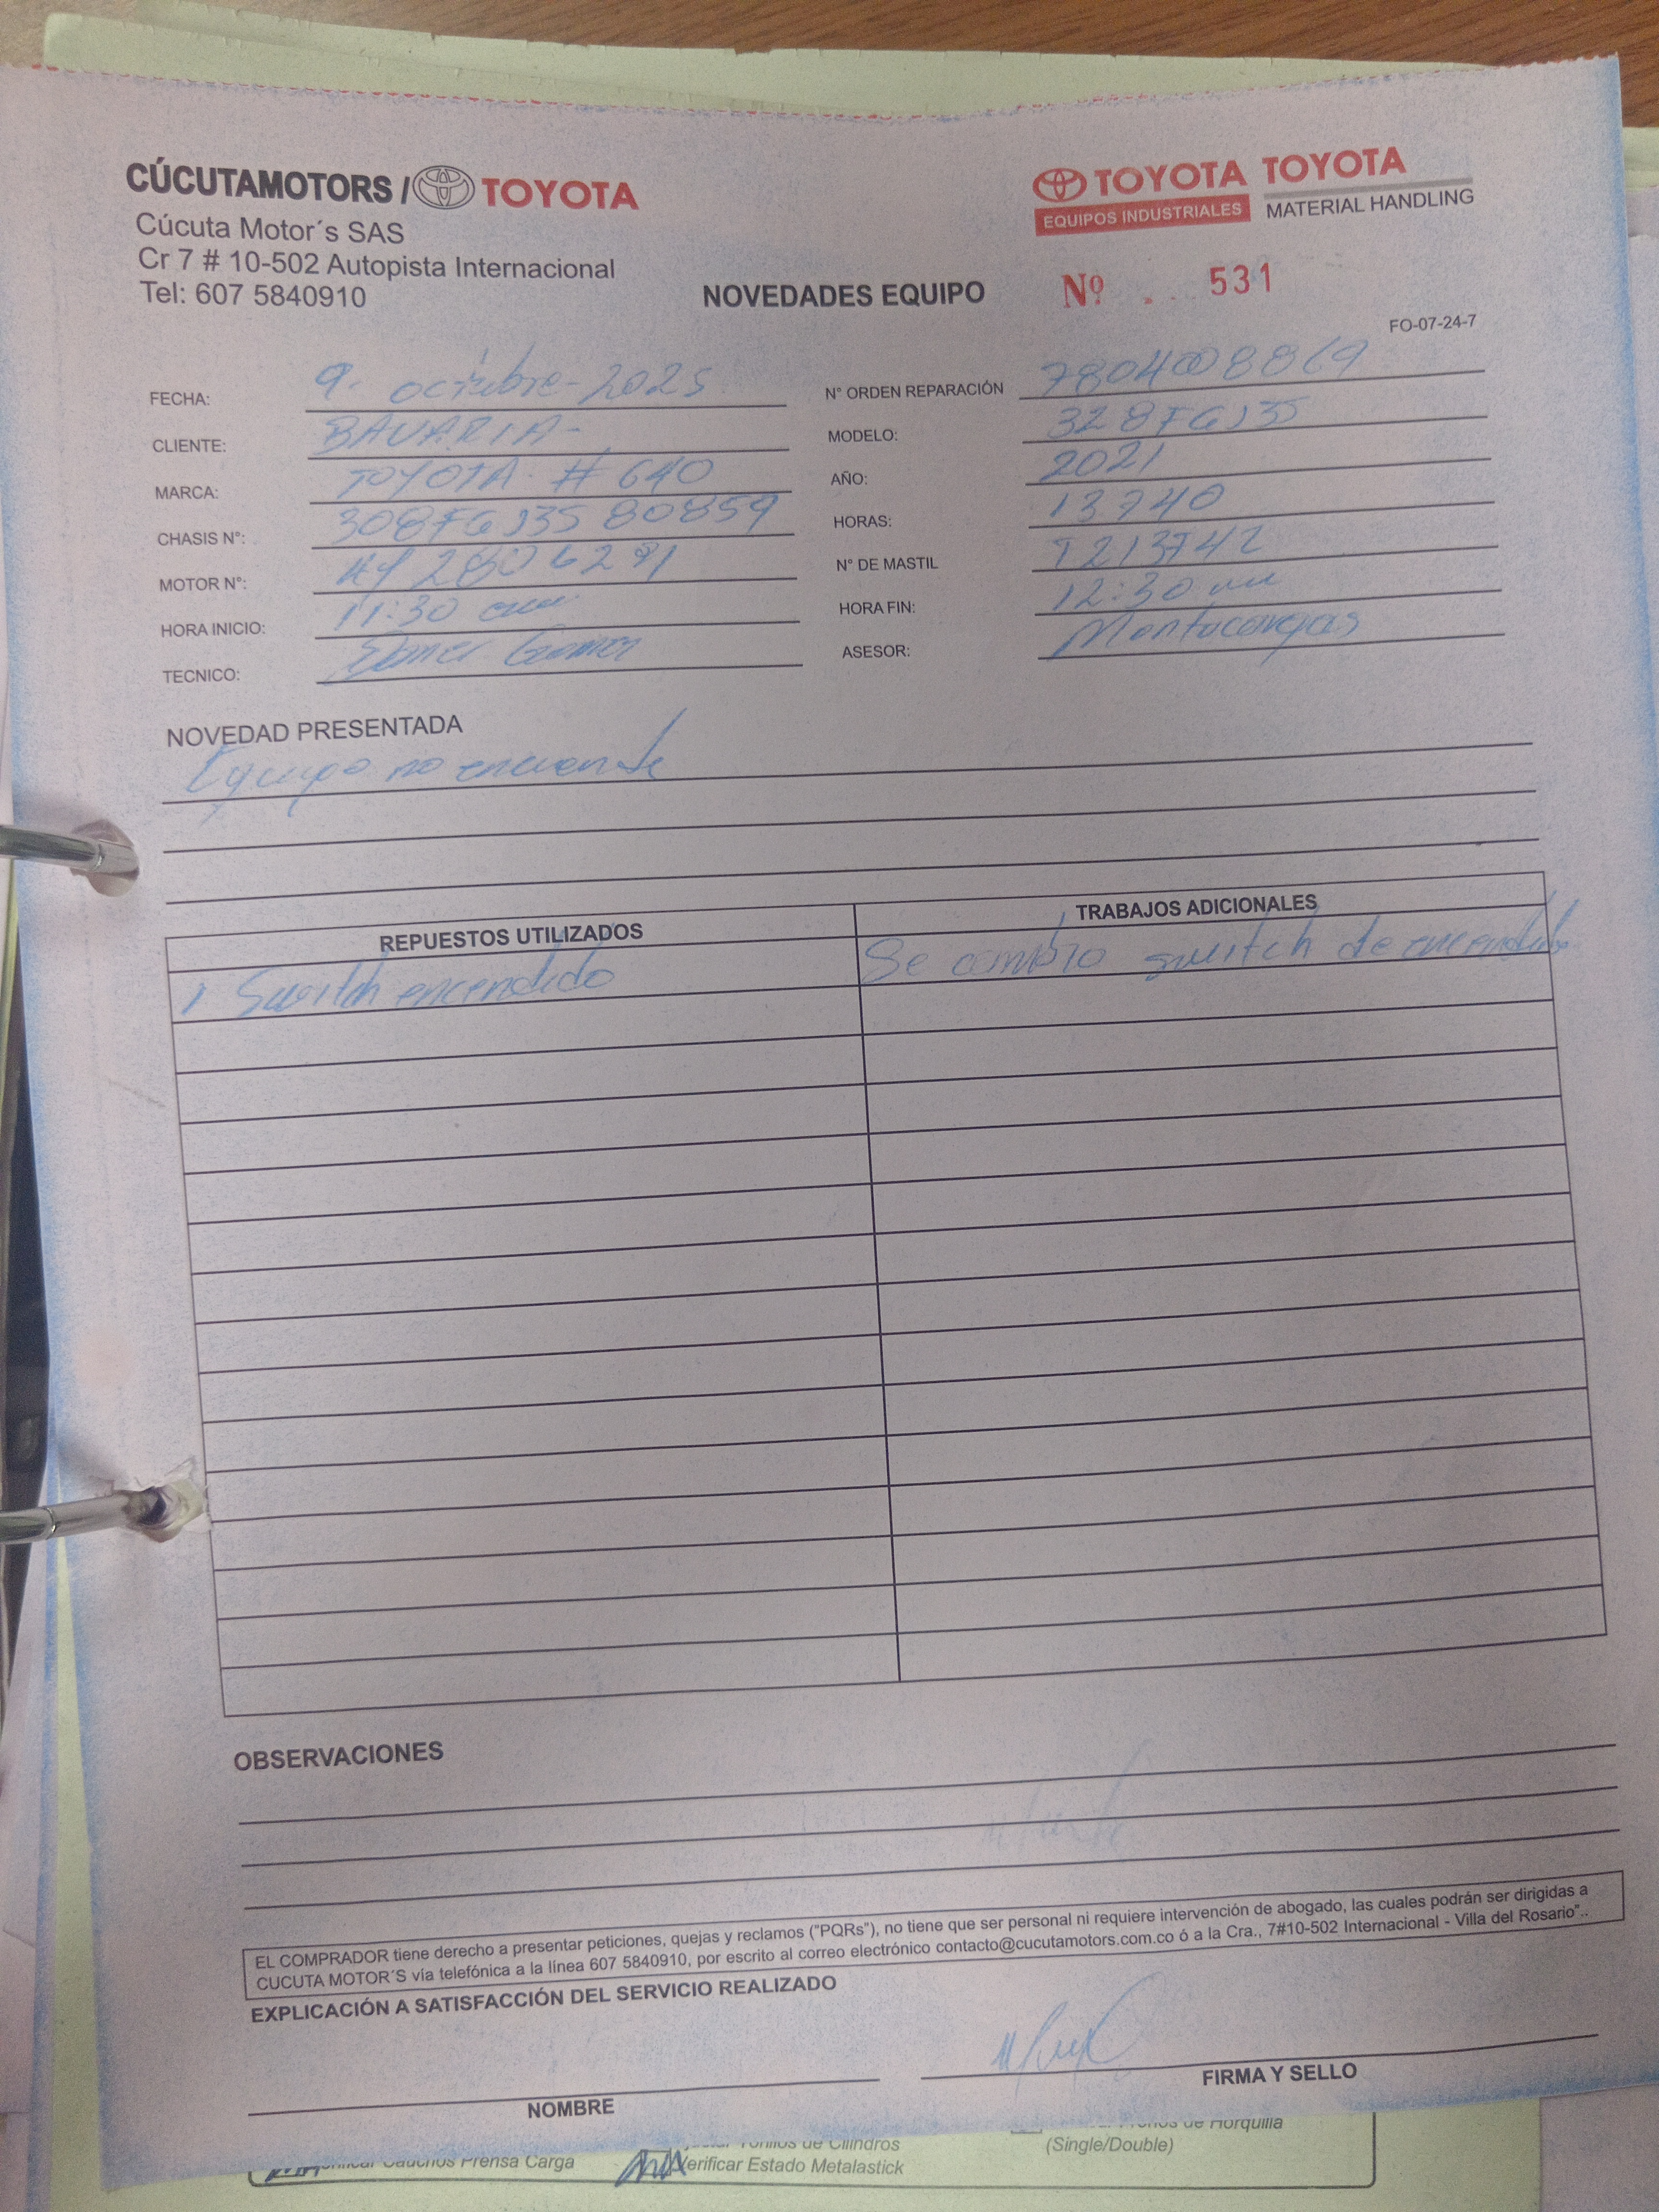 CÚCUTAMOTORS / TOYOTA
Cúcuta Motor´s SAS
Cr 7 # 10-502 Autopista Internacional
Tel: 607 5840910
TOYOTA TOYOTA
EQUIPOS INDUSTRIALES MATERIAL HANDLING
NOVEDADES EQUIPO Nº 531
FO-07-24-7
FECHA: 9. octubre-2025 N° ORDEN REPARACIÓN
CLIENTE: BAVARIA- MODELO: 328FGJ35
MARCA: TOYOTA. # 640 AÑO: 2021
CHASIS N°: 308FGJ35 80859 HORAS: 13740
MOTOR N°: N° DE MASTIL T213742
HORA INICIO: 11:30 HORA FIN: 12:30
TECNICO: ASESOR: Montacargas
NOVEDAD PRESENTADA
Equipo no enciende
REPUESTOS UTILIZADOS TRABAJOS ADICIONALES
1 Switch encendido Se cambio switch de encendido
OBSERVACIONES
EL COMPRADOR tiene derecho a presentar peticiones, quejas y reclamos ("PQRs"), no tiene que ser personal ni requiere intervención de abogado, las cuales podrán ser dirigidas a
CUCUTA MOTOR´S vía telefónica a la línea 607 5840910, por escrito al correo electrónico contacto@cucutamotors.com.co ó a la Cra., 7#10-502 Internacional - Villa del Rosario"..
EXPLICACIÓN A SATISFACCIÓN DEL SERVICIO REALIZADO
NOMBRE FIRMA Y SELLO
de Horquilla
Tornillos de Cilindros (Single/Double)
Cauchos Prensa Carga Verificar Estado Metalastick